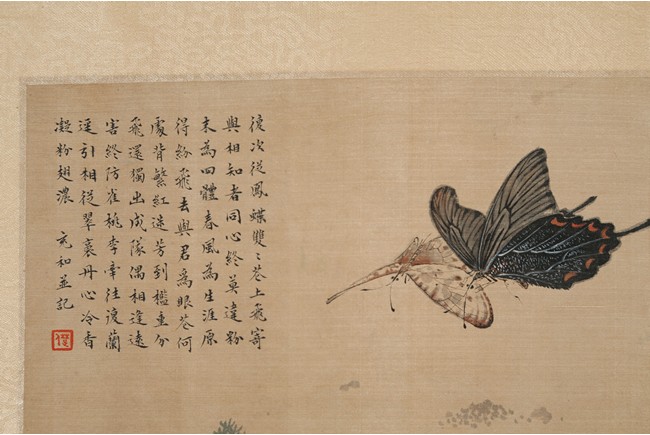 復次從鳳蝶雙〻花上飛寄
與相知者同心終莫違粉
末為四體春風為生涯原
得紛飛去與君為眼花何
處背繁紅迷芳到檻重分
飛還獨出成隊偶相逢遠
害終防雀桃李幸往後蘭
逕引相從翠裛丹心冷香
凝粉翅濃 元和並記